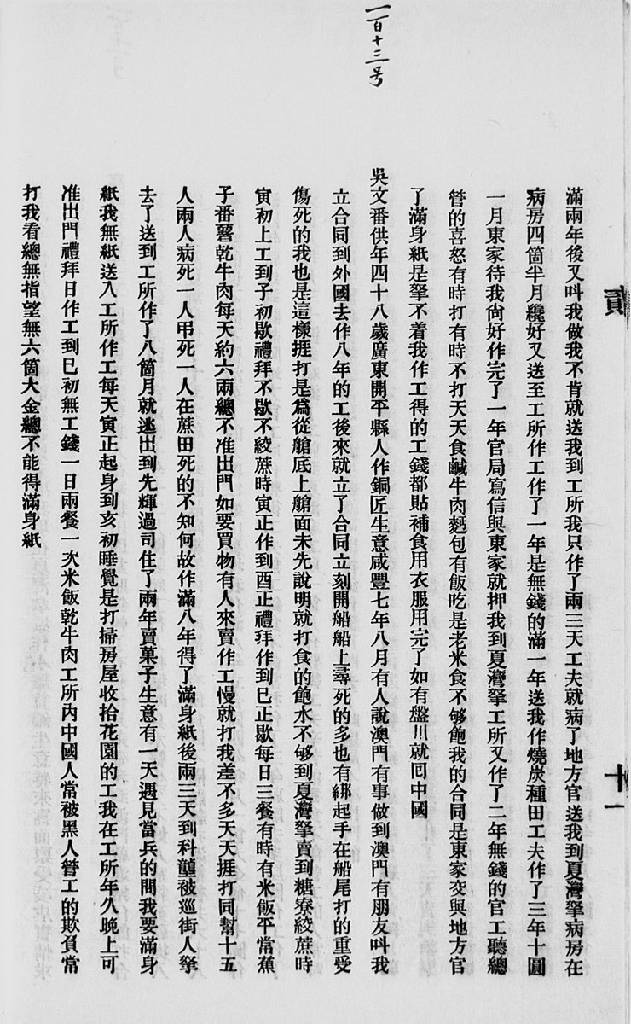 一百十三号
滿兩年後又叫我做我不肯就送我到工所我只作了兩三天工夫就病了地方官送我到夏灣拏病房在
病房四箇半月纔好又送至工所作工作了一年是無錢的滿一年送我作燒炭種田工夫作了三年十圓
一月東家待我尙好作完了一年官局寫信與東家就押我到夏灣拏工所又作了二年無錢的官工聽總
管的喜怒有時打有時不打天天食鹹牛肉麪包有飯吃是老米食不够飽我的合同是東家交與地方官
了滿身紙是拏不着我作工得的工錢都貼補食用衣服用完了如有盤川就囘中國
吳文番供年四十八歲廣東開平縣人作銅匠生意咸豐七年八月有人說澳門有事做到澳門有朋友叫我
立合同到外國去作八年的工後來就立了合同立刻開船船上尋死的多也有綁起手在船尾打的重受
傷死的我也是這樣捱打是爲從艙底上艙面未先說明就打食的飽水不够到夏灣拏賣到糖寮絞蔗時
寅初上工到子初歇禮拜不歇不絞蔗時寅正作到酉正禮拜作到巳正歇每日三餐有時有米飯平常蕉
子番薯乾牛肉每天約六兩總不准出門如要買物有人來賣作工慢就打我差不多天天捱打同幫十五
人兩人病死一人弔死一人在蔗田死的不知何故作滿八年得了滿身紙後兩三天到科䕪被巡街人拏
去了送到工所作了八箇月就逃出到先輝過司住了兩年賣菓子生意有一天遇見當兵的問我要滿身
紙我無紙送入工所作工每天寅正起身到亥初睡覺是打掃房屋收拾花園的工我在工所年久晚上可
准出門禮拜日作工到巳初無工錢一日兩餐一次米飯乾牛肉工所內中國人常被黑人管工的欺負常
打我看總無指望無六箇大金總不能得滿身紙
十一